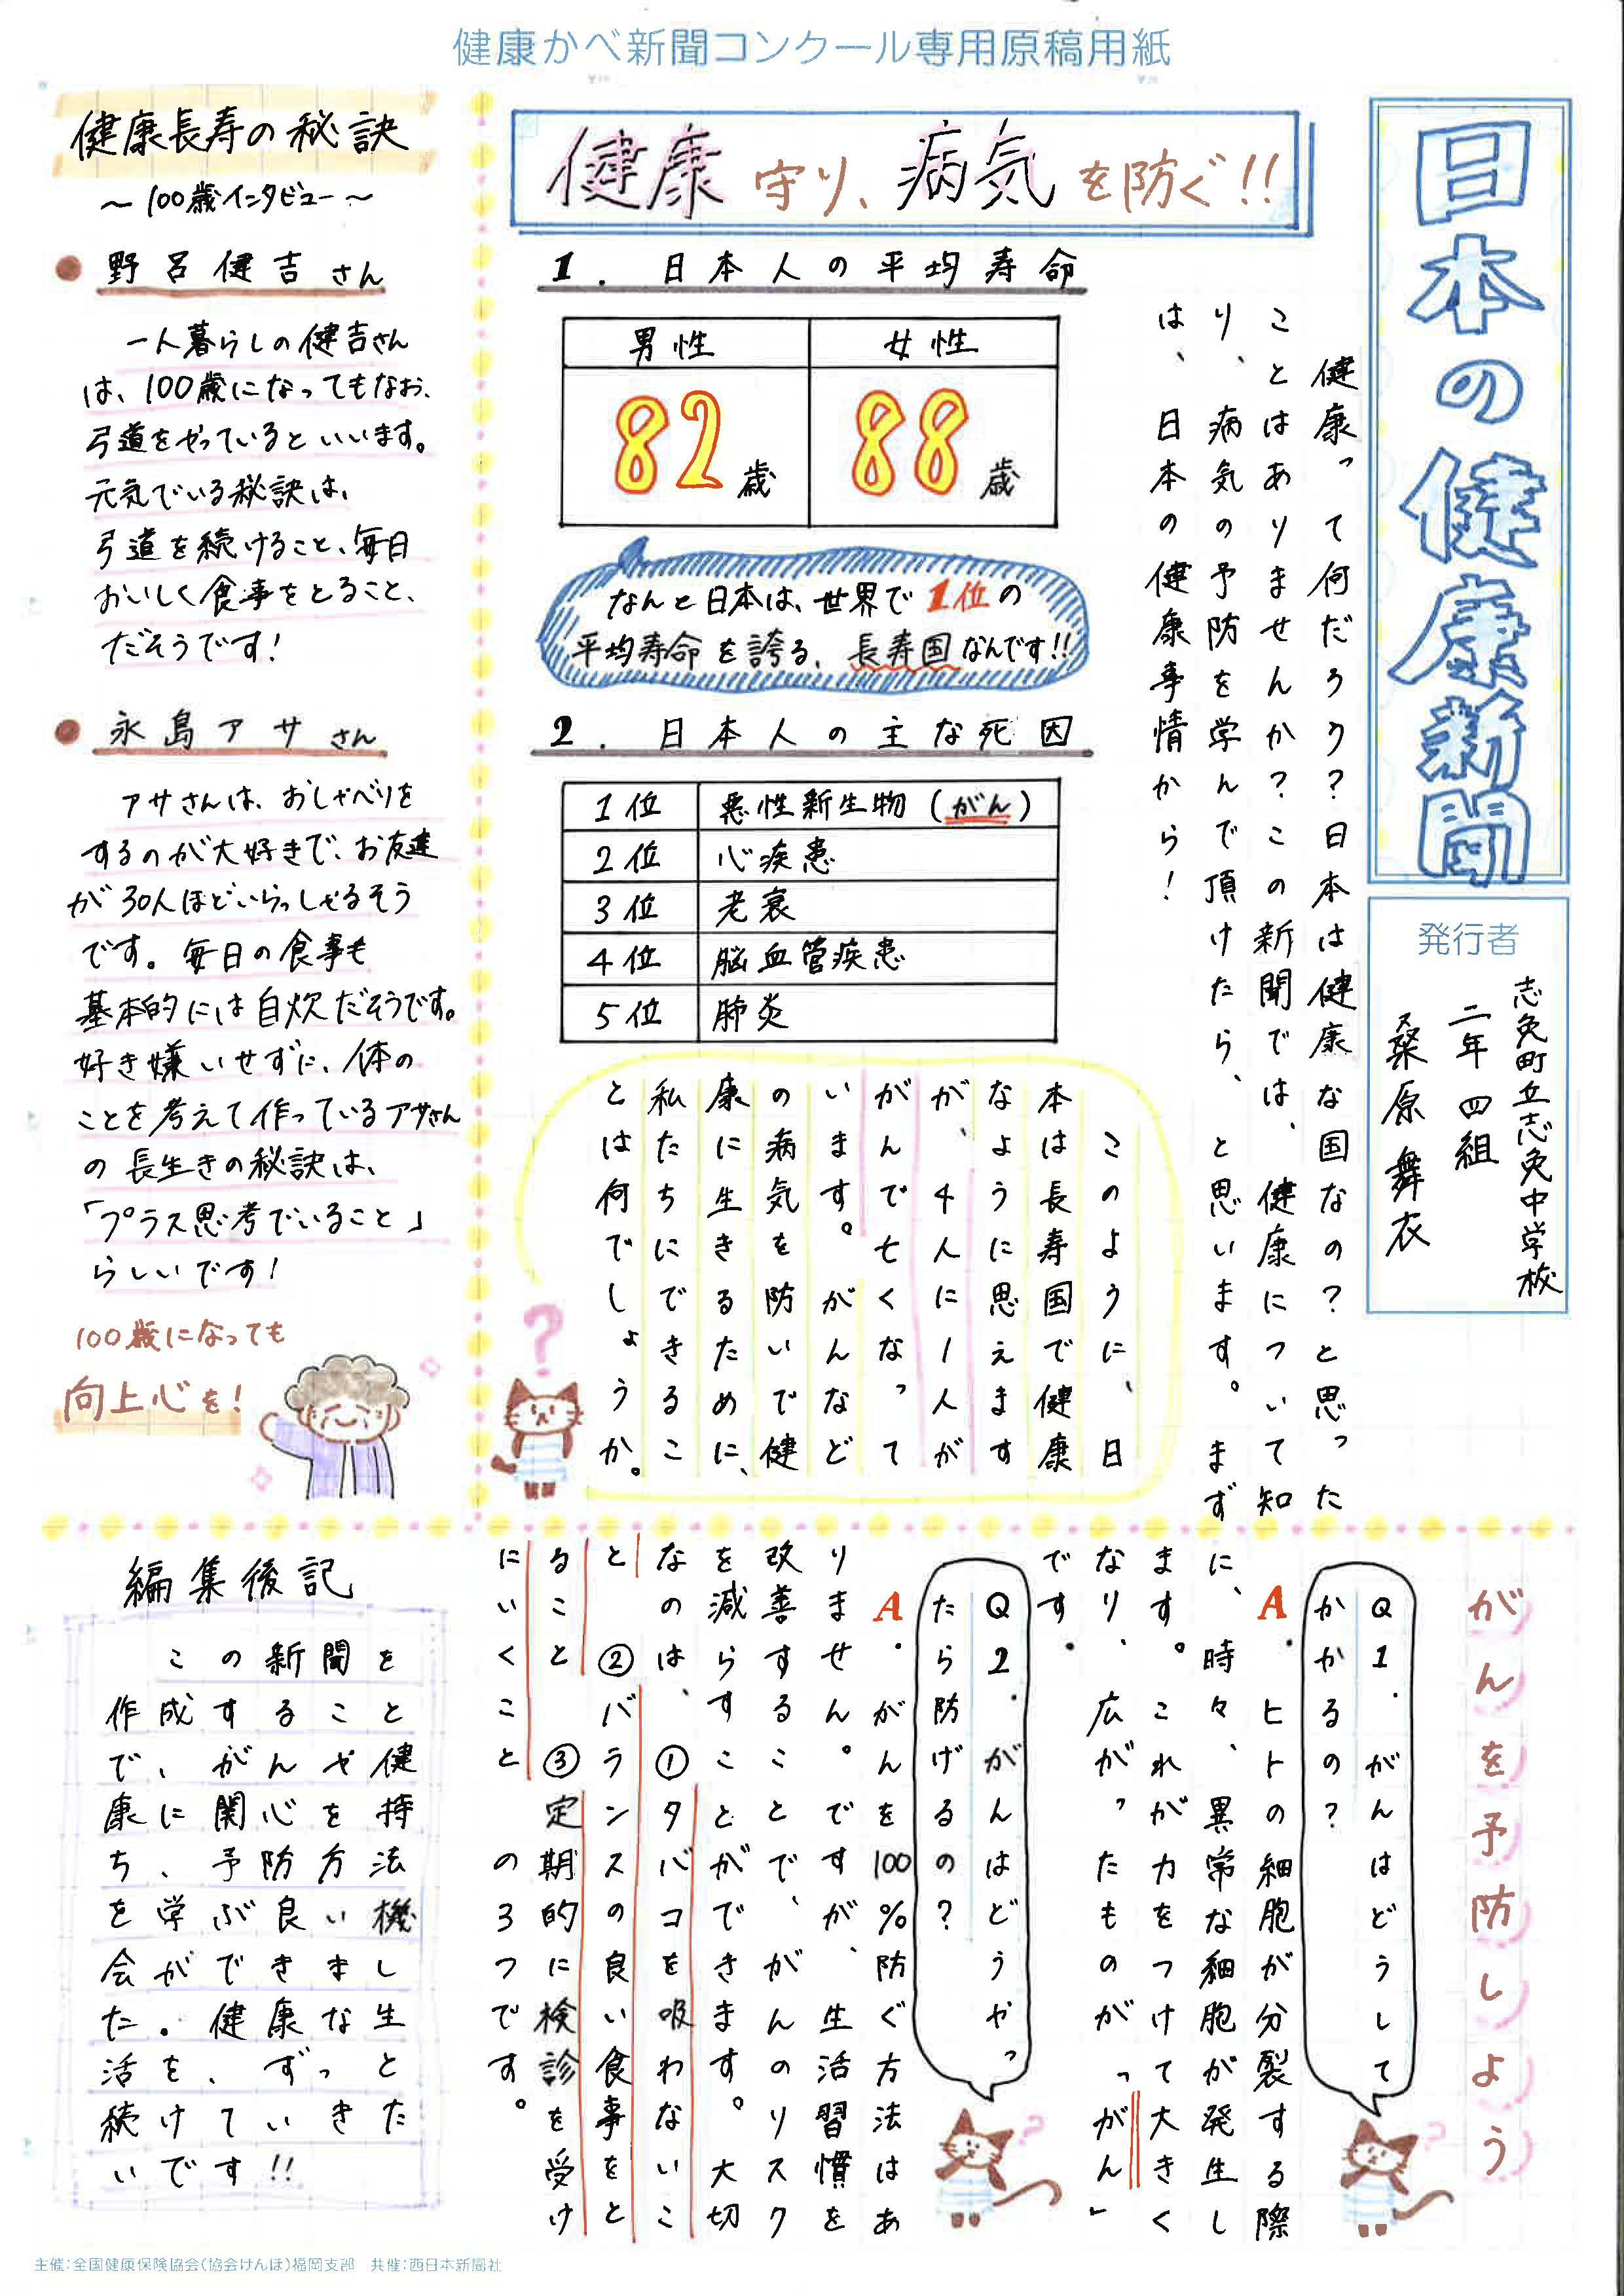 健康かべ新聞コンクール専用原稿用紙
日本の健康新聞
発行者
志免町立志免中学校
二年四組
桑原舞衣
健康って何だろう?日本は健康な国なの?と思った
ことはありませんか?この新聞では、健康について知
り、病気の予防を学んで頂けたら、と思います。まず
は、日本の健康事情から!
健康守り、病気を防ぐ!!
1.日本人の平均寿命
男性 女性
82歳 88歳
なんと日本は、世界で1位の
平均寿命を誇る、長寿国なんです!!
2.日本人の主な死因
1位 悪性新生物(がん)
2位 心疾患
3位 老衰
4位 脳血管疾患
5位 肺炎
このように、日
本は長寿国で健康
なように思えます
が、4人に1人が
がんで亡くなって
います。がんなど
の病気を防いで健
康に生きるために、
私たちにできるこ
とは何でしょうか。
?
健康長寿の秘訣
~100歳インタビュー~
●野呂健吉さん
一人暮らしの健吉さん
は、100歳になってもなお、
弓道をやっているといいます。
元気でいる秘訣は、
弓道を続けること、毎日
おいしく食事をとること、
だそうです!
●永島アサさん
アサさんは、おしゃべりを
するのが大好きで、お友達
が30人ほどいらっしゃるそう
です。毎日の食事も
基本的には自炊だそうです。
好き嫌いせずに、体の
ことを考えて作っているアサさん
の長生きの秘訣は、
「プラス思考でいること」
らしいです!
100歳になっても
向上心を!
がんを予防しよう
Q1.がんはどうして
かかるの?
A.ヒトの細胞が分裂する際
に、時々、異常な細胞が発生し
ます。これが力をつけて大きく
なり、広がったものが「がん」
です。
Q2.がんはどうやっ
たら防げるの?
A.がんを100%防ぐ方法はあ
りません。ですが、生活習慣を
改善することで、がんのリスク
を減らすことができます。大切
なのは、①タバコを吸わないこ
と ②バランスの良い食事をと
ること ③定期的に検診を受け
にいくこと の3つです。
編集後記
この新聞を
作成すること
で、がんや健
康に関心を持
ち、予防方法
を学ぶ良い機
会ができまし
た。健康な生
活を、ずっと
続けていきた
いです!!
主催:全国健康保険協会(協会けんぽ)福岡支部 共催:西日本新聞社